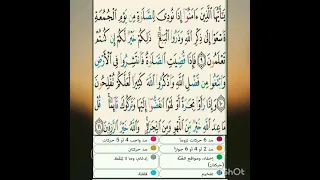 يَٰٓأَيُّهَا ٱلَّذِينَ ءَامَنُوٓا۟ إِذَا نُودِىَ لِلصَّلَوٰةِ مِن يَوْمِ ٱلْجُمُعَةِ
فَٱسْعَوْا۟ إِلَىٰ ذِكْرِ ٱللَّهِ وَذَرُوا۟ ٱلْبَيْعَ ذَٰلِكُمْ خَيْرٌ لَّكُمْ إِن كُنتُمْ
تَعْلَمُونَ ٩ فَإِذَا قُضِيَتِ ٱلصَّلَوٰةُ فَٱنتَشِرُوا۟ فِى ٱلْأَرْضِ
وَٱبْتَغُوا۟ مِن فَضْلِ ٱللَّهِ وَٱذْكُرُوا۟ ٱللَّهَ كَثِيرًا لَّعَلَّكُمْ تُفْلِحُونَ
١٠ وَإِذَا رَأَوْا۟ تِجَٰرَةً أَوْ لَهْوًا ٱنفَضُّوٓا۟ إِلَيْهَا وَتَرَكُوكَ قَآئِمًا قُلْ
مَا عِندَ ٱللَّهِ خَيْرٌ مِّنَ ٱللَّهْوِ وَمِنَ ٱلتِّجَٰرَةِ وَٱللَّهُ خَيْرُ ٱلرَّٰزِقِينَ ١١
مد 6 حركات لزوما
مد واجب 4 أو 5 حركات
مد 2 أو 4 أو 6 جوازا
مد حركتان
إخفاء، ومواقع الغنّة (حركتان)
إدغام، وما لا يُلفظ
تفخيم
قلقلة